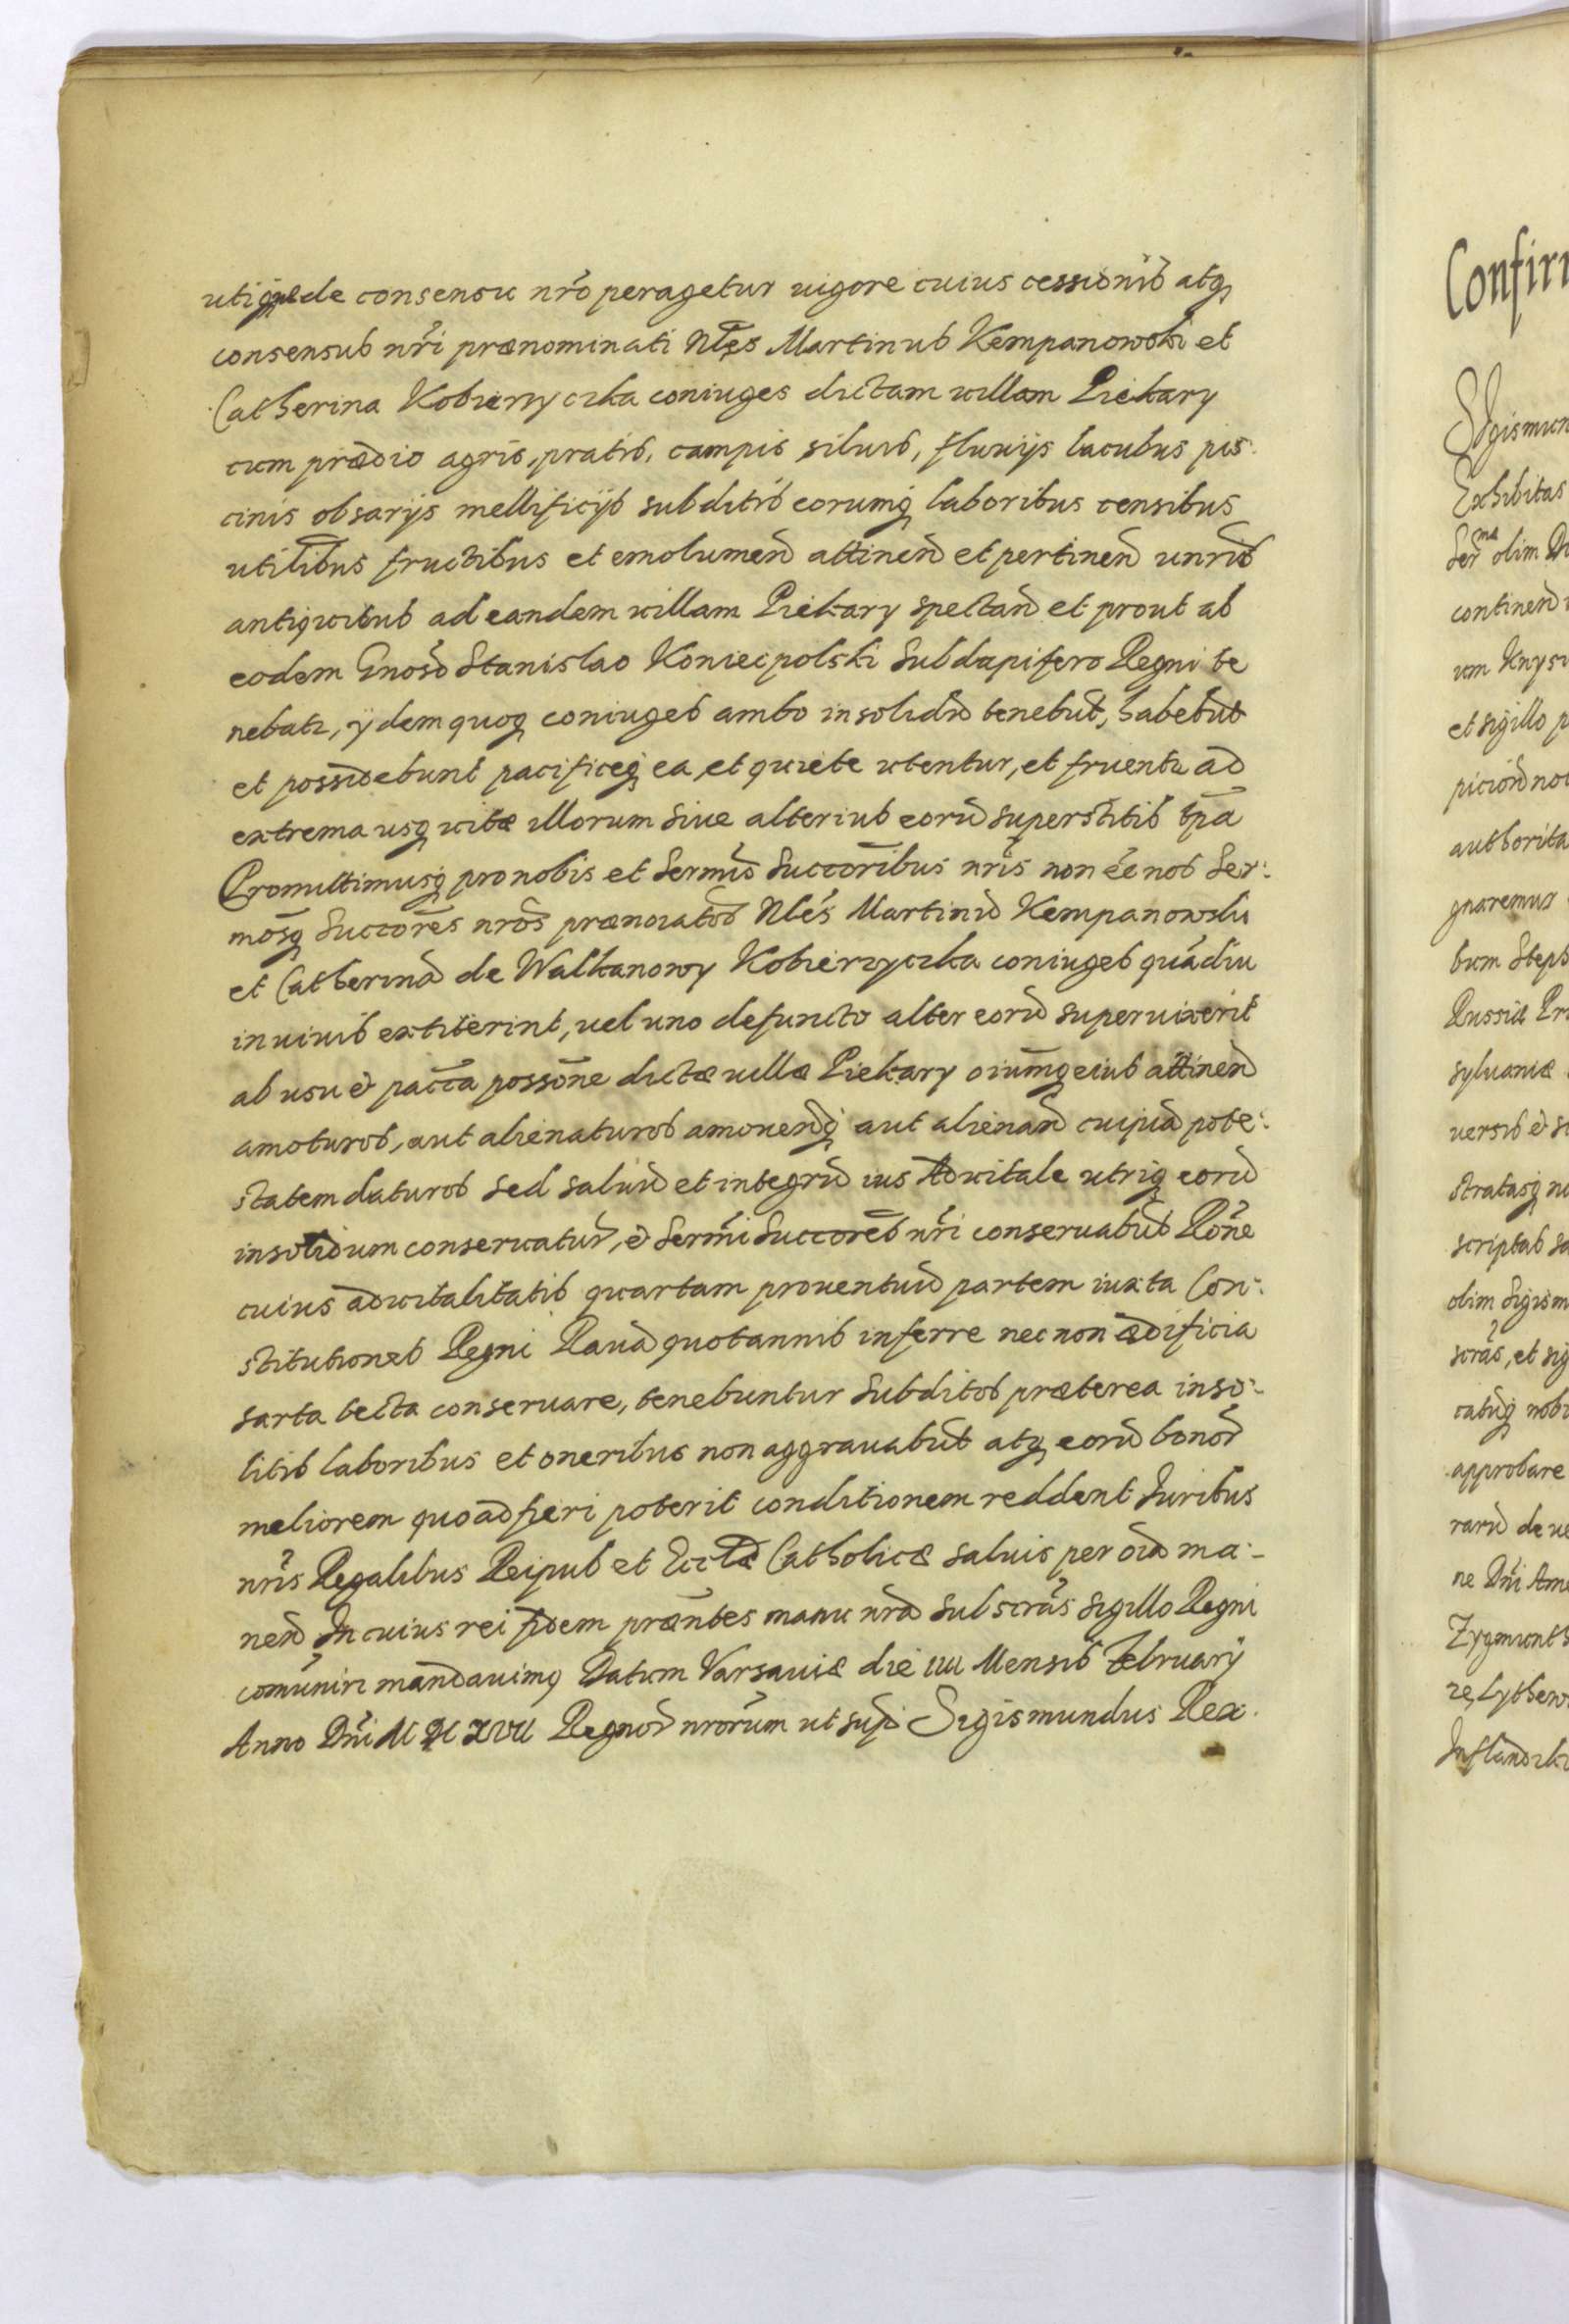 utiq̨ de consensu nr̃o peragetur uigore cuius cessionis atq̨
consensus nr̃i prænominati Nles Martinus Kempanowski et
Catherina Kobierzyczka coniuges dictam uillam Piekary
cum prædio agris, pratis, campis siluis, fluuijs lacubus pis:
cinis obsarijs mellificijs subditis eorumq̨ laboribus censibus
utilibus fructibus et emolumen̄ attinen̄ et pertinen̄ unr̃is
antiquitus ad eandem uillam Piekary spectan̄ et prout ab
eodem Gnoso Stanislao Koniecpolski Subdapifero Regni te
nebatr, ijdem quoq̨ coniuges ambo in solidū tenebūt, habebūt
et possidebunt pacificeq̨ ea et quiete utentur, et fruentr ad
extrema usq̨ uitæ illorum siue alterius eorū superstitis tp̄a
Promittimusq̨ pro nobis et Serm̃is Succoribus nr̃is non ēē nos Ser:
mosq̨ Succores nr̃os prænoiatos Nles Martinū Kempanowski
et Catherinā de Walkanowy Kobierzyczka coniuges quādiu
in uiuis extiterint, uel uno defuncto alter eorū superuixerit
ab usu & pacca possone dictæ uillæ Piekary oiūmq̨ eius attinen̄
amoturos, aut alienaturos amouendiq̨ aut alienan̄ cuipiā pote:
statem daturos sed saluū et integrū ius Aduitale utriq̨ eorū
insolidum conseruatur̄, & Serm̃i Succores nr̃i conseruabūt Rōne
cuius aduitalitatis quartam prouentuū partem iuxta Con:
stitutiones Regni Rauā quotannis inferre nec non ædificia
sarta tecta conseruare, tenebuntur Subditos præterea inso:
litis laboribus et oneribus non aggrauabūt atq̨ eorū bonor̄
meliorem quoad fieri poterit conditionem reddent Iuribus
nr̃is Regalibus Reipub et Ecclæ Catholicæ saluis per oīa ma:
nen̄ In cuius rei fidem præntes manu nrā subscrās sigillo Regni
comuniri mandauimq̨ Datum Varsauiæ die iiii Mensis February
Anno Dn̄i M D XVII Regnor̄ nrorum ut sup̄ Sigismundus Rex.
Confir
Sigismun
Exhibitas
Ser^me olim
continen̄
et sigillo
authorita
gnaremur
bum Steph
Russiæ Pr
syluaniæ
stratasq̨
scriptas
olim Sigism
scrās, et sig
approbare
rarū de
ne Dn̄i Am
Zygmunth